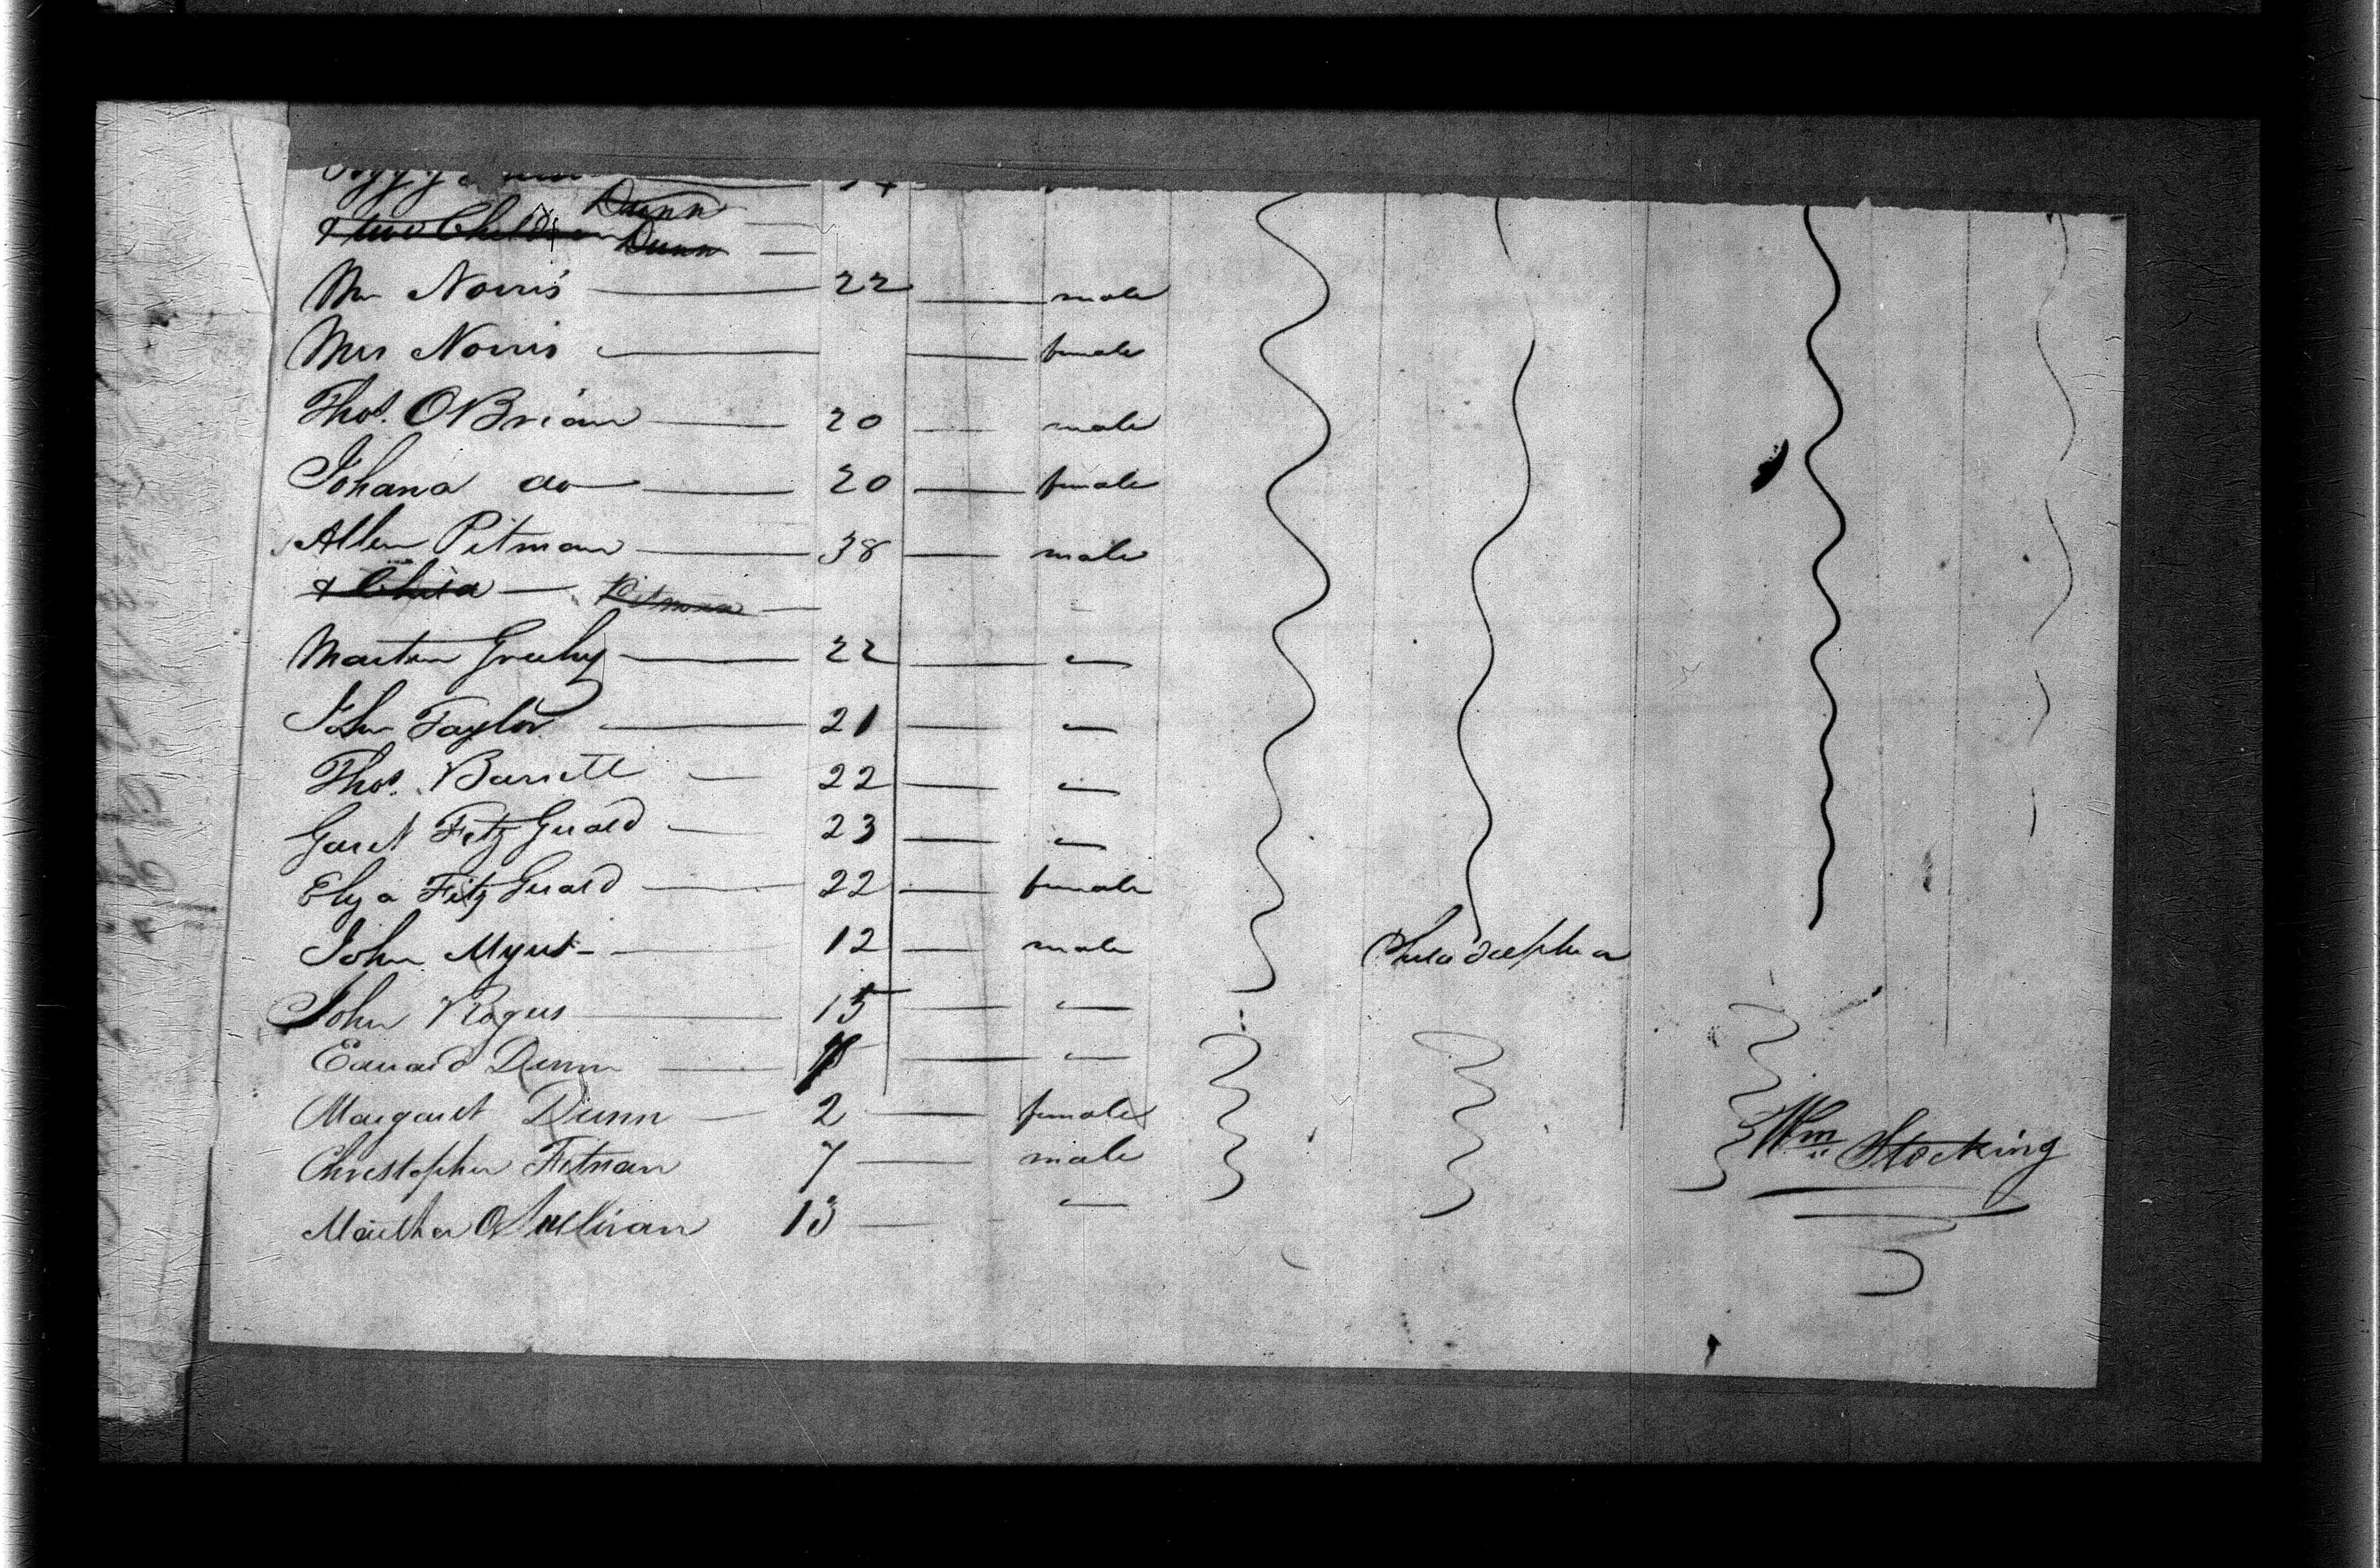 Dunn
& two Children Dunn
Mr Norris 22 male
Mrs Norris female
Thos. OBrian 20 male
Johana do 20 female
Allen Pitman 38 male
& Child Pitman
Martin Greehy 22 "
John Taylor 21 "
Thos. Barrett 22 "
Garet FitzGerald 23 "
Elyza FitzGerald 22 female
John Myers 12 male Philadelphia
John Rogers 15 "
Edward Dunn "
Margaret Dunn 2 female
Christopher Pitman 7 male Wm Stocking
OSullivan 13 "